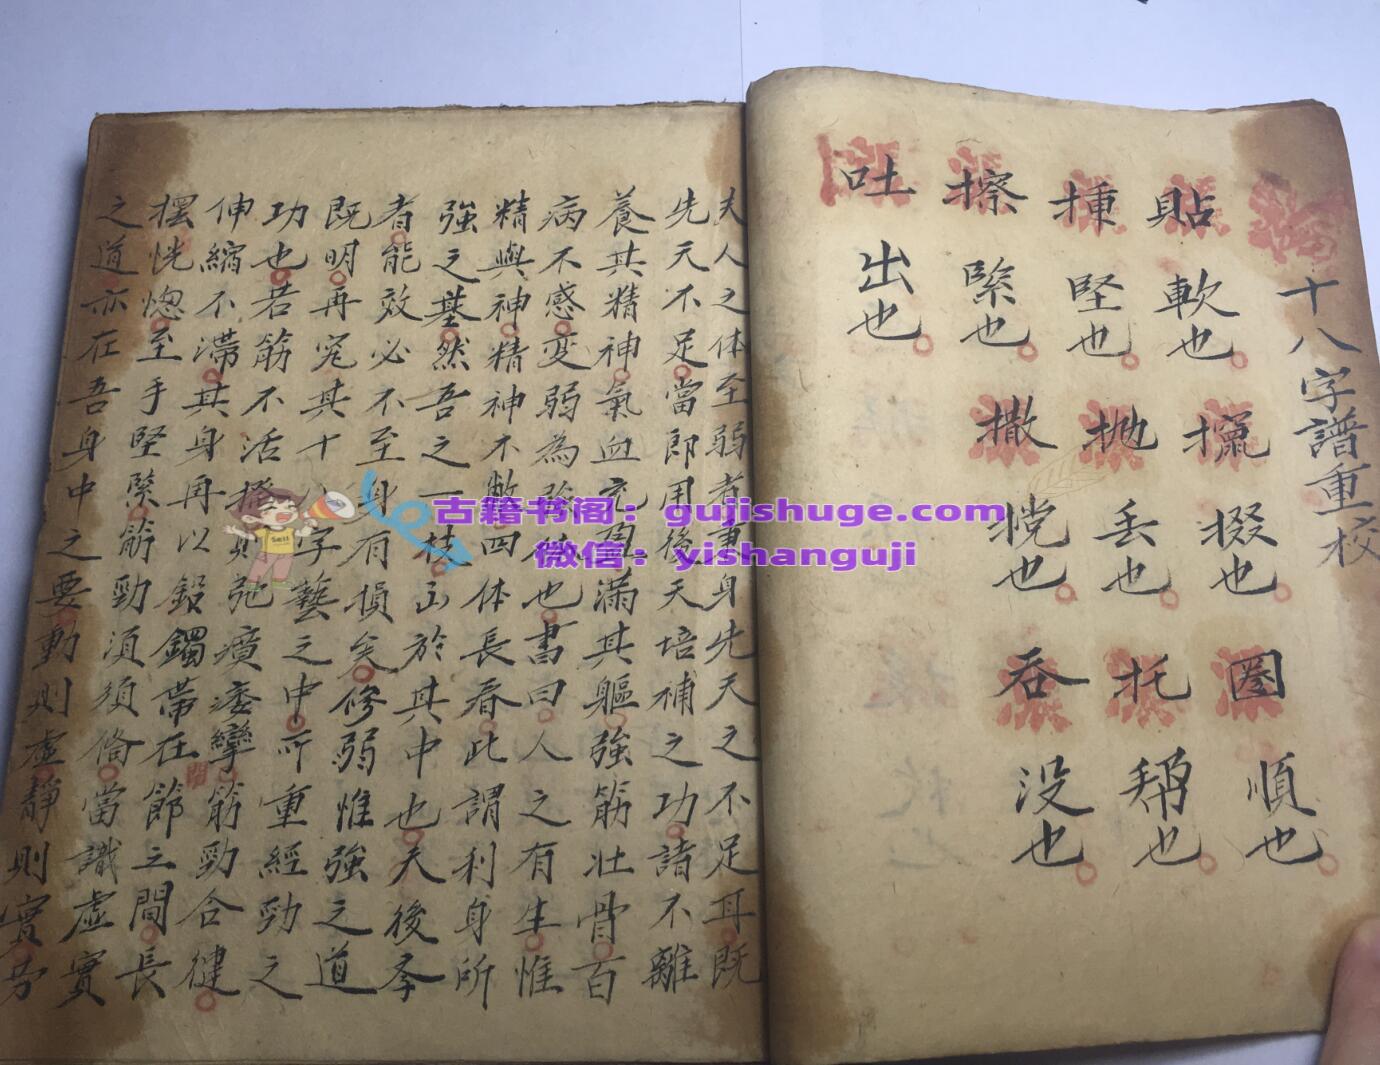 十八字譜重校
貼軟也 攌掇也 圈順也
揰堅也 抛丢也 托帮也
擦緊也 撒攩也 吞没也
吐出也
夫人之体至弱者重身先天之不足耳既
先天不足當即用後天培補之功諸不離
養其精神氣血充盈滿其軀強筋壯骨百
病不感变弱為強体也書曰人之有生惟
精與神精神不敝四体長春此謂利身所
強之基然吾之一枝出於其中也天後孝
者能效必不至身有損矣修弱惟強之道
既明再究其十八字藝之中所重經勁之
功也若筋不活撥則弛癀痿攣筋勁合健
伸縮不滯其身再以鉛鐲帶在節之間長
擺恍惚至手堅緊筋勁須須俻當識虛實
之道亦在吾身中之要動則虛靜則實
古籍书阁：gujishuge.com
微信：yishanguji